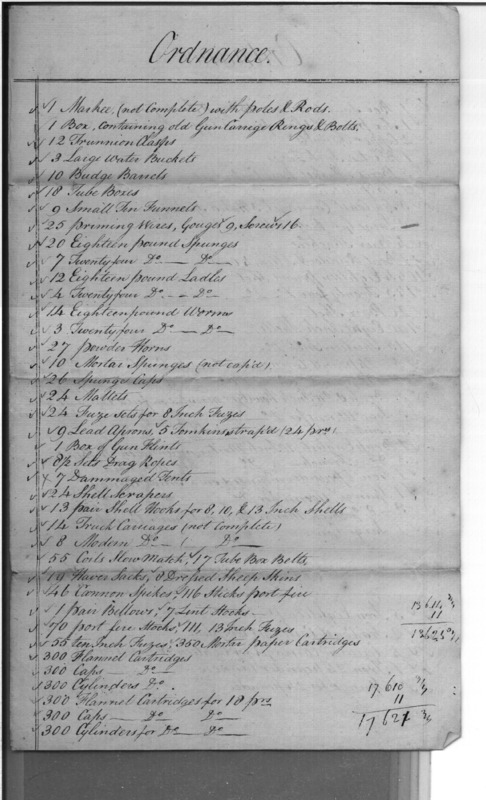 Ordnance.
1 Markee, (not Complete) with poles & Rods.
1 Box, containing old Gun Carrige Rings & Bolts.
12 Trunnion Clasps
3 Large Water Buckets
10 Budge Barrels
18 Tube Boxes
9 Small Tin Funnels
25 priming Wires, Gouges 9, Screws 16
20 Eighteen pound Spunges
7 Twenty four Do — Do —
12 Eighteen pound Ladles
4 Twenty four Do — Do —
14 Eighteen pound Worms
3 Twenty four Do — Do —
27 powder Horns
10 Mortar Spunges (not cap'd)
26 Spunge Caps
24 Mallets
24 Fuze Sets for 8 Inch Fuzes
9 Lead Aprons, 5 Tomkins strap'd (24 prs)
1 Box of Gun Flints
8½ Sets Drag Ropes
7 Dammaged Tents
24 Shell Scrapers
13 pair Shell Hooks for 8, 10, & 13 Inch Shells
14 Truck Carriages (not complete)
8 Modern Do — ( Do —
55 Coils Slow Match, 17 Tube Box Belts,
19 Haver Sacks, 8 Sheep Skins
46 Cannon Spikes, 116 Sticks port fire
1 pair Bellows, 7 Lint Stocks
70 port fire Stocks, 111, 13 Inch Fuzes
55 ten Inch Fuzes, 350 Mortar paper Cartridges
300 Flannel Cartridges
300 Caps — Do —
300 Cylinders Do.
300 Flannel Cartridges for 18 prs
300 Caps — Do — Do —
300 Cylinders for Do — Do —
11
17.610
11